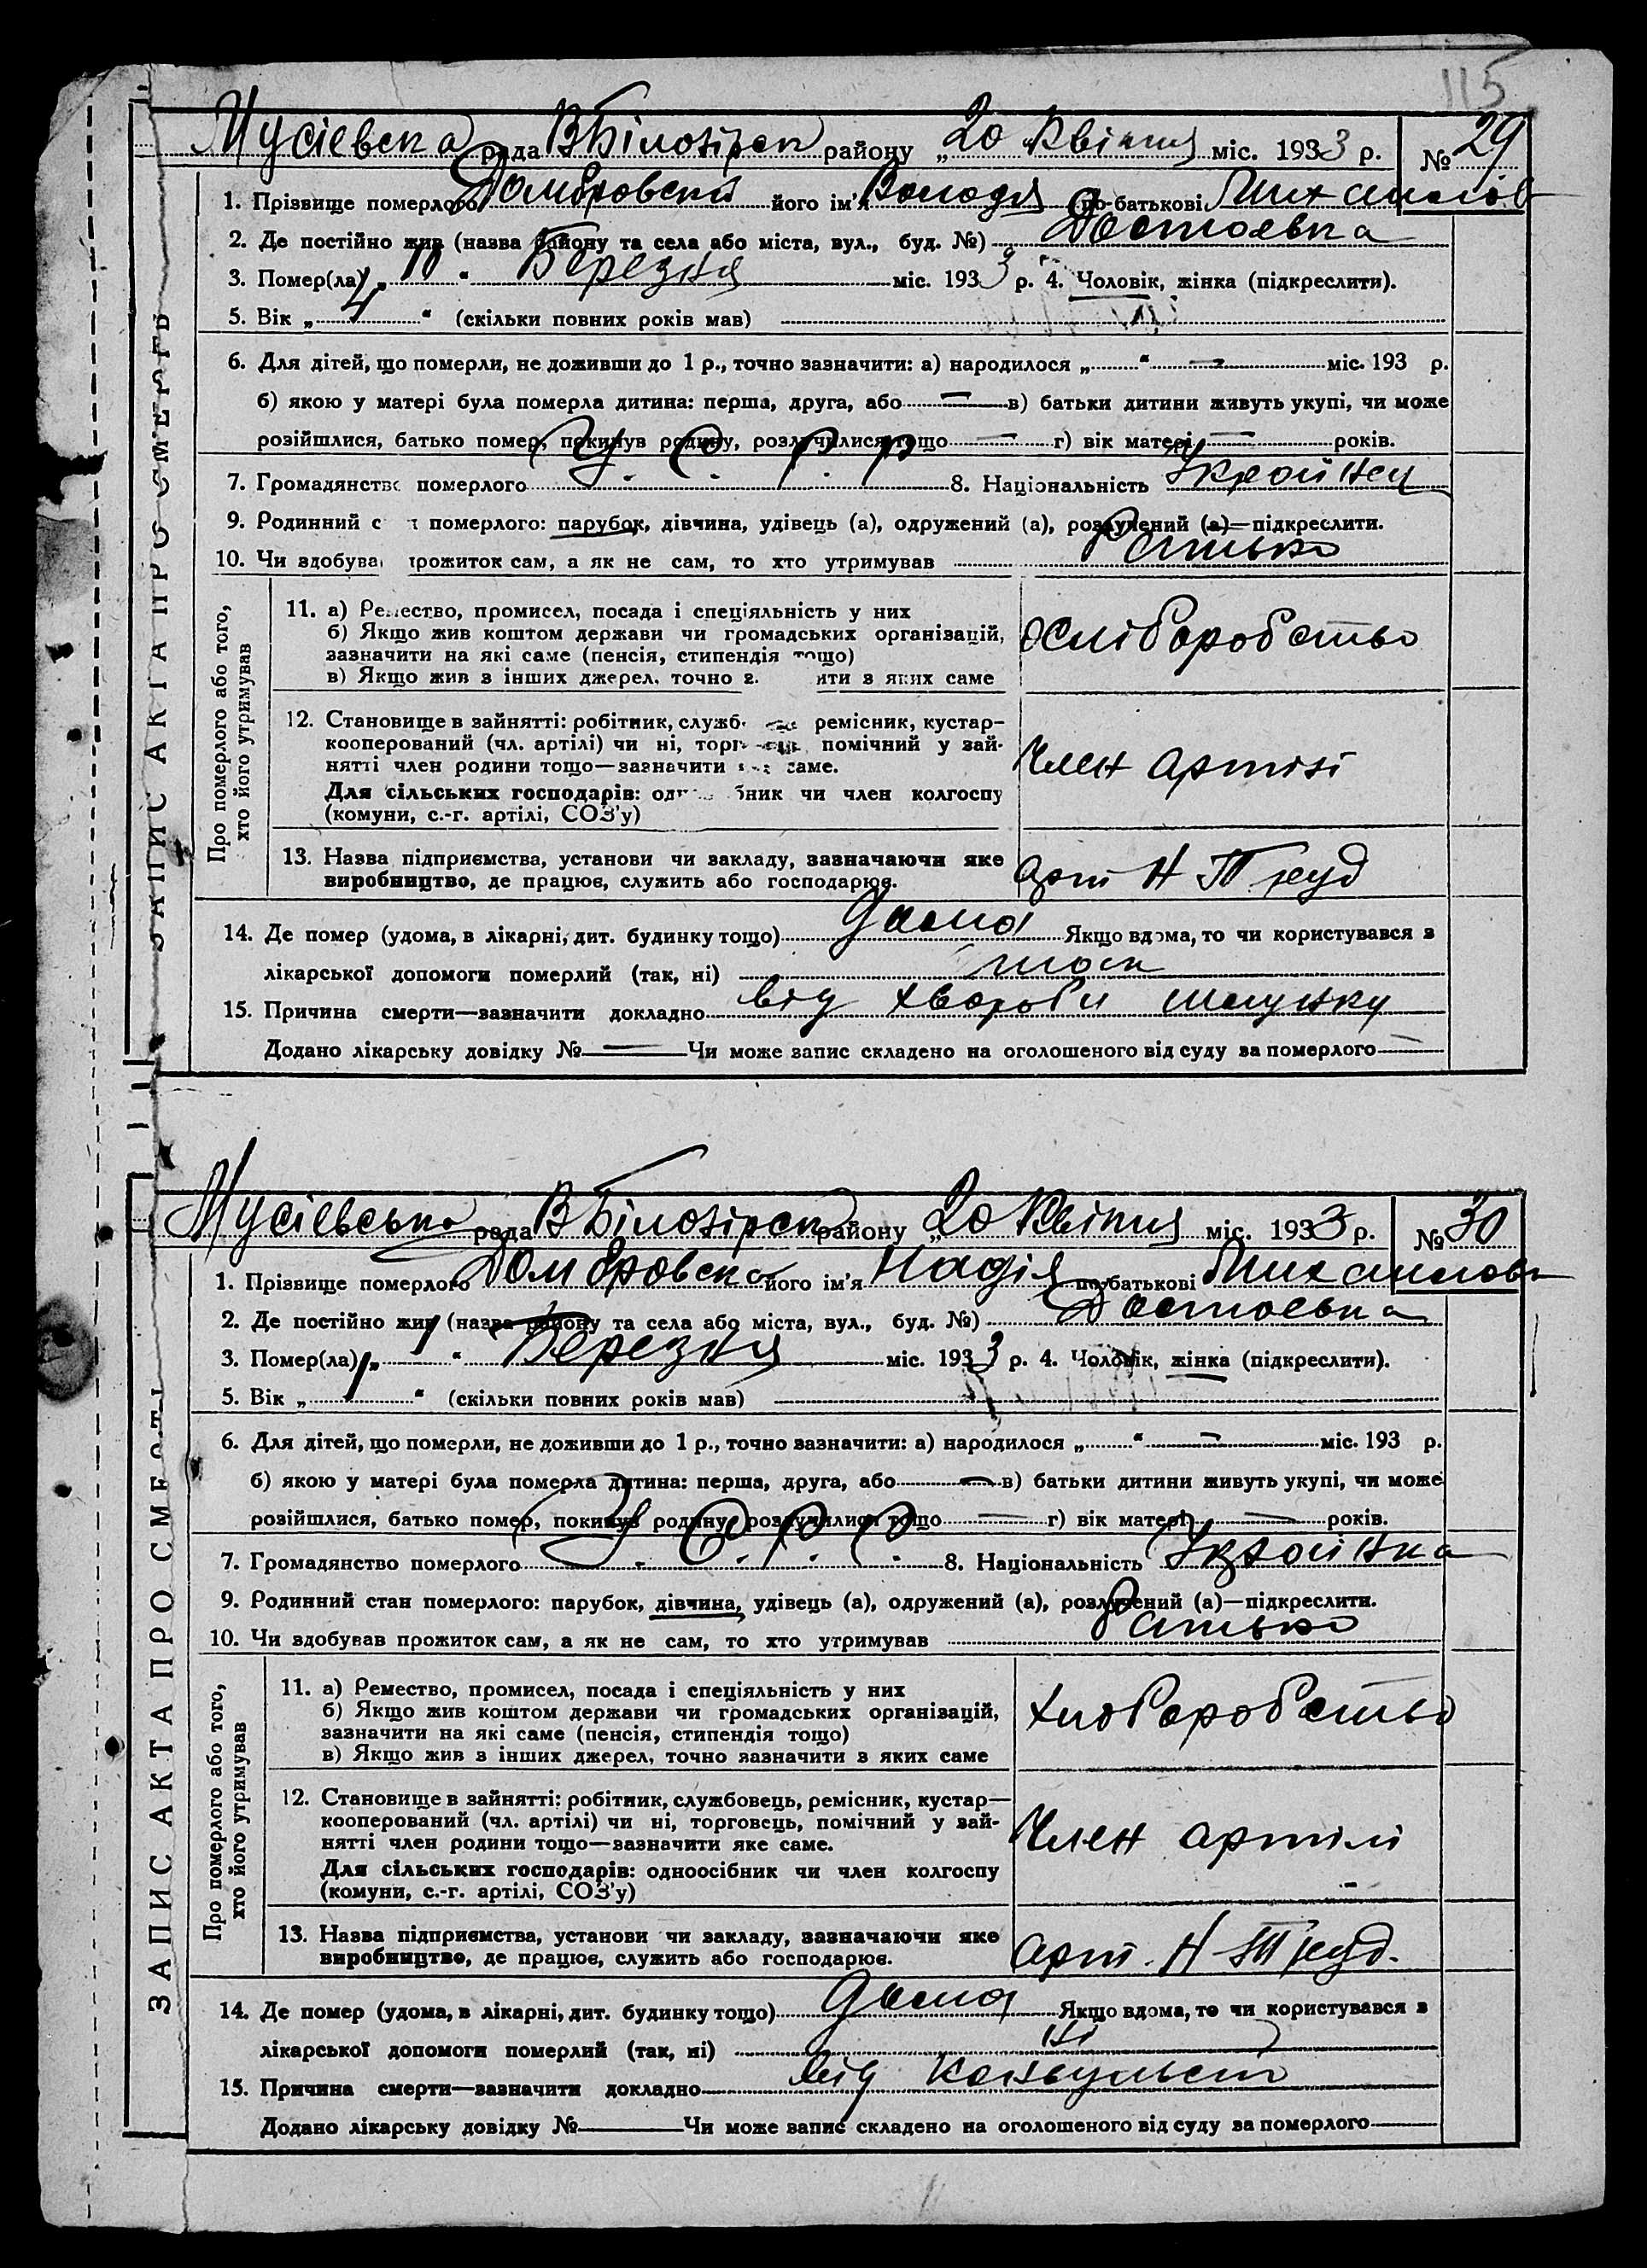 115
Мусієвска рада ВБілозірск району „20 Квітня міс. 1933 р. № 29
1. Прізвище померлого Домбровский його ім'я Володя по-батькові Михайлов
2. Де постійно жив (назва району та села або міста, вул., буд. №) Достоевка
3. Помер(ла) „ 10 “ Березня міс. 1933 р. 4. Чоловік, жінка (підкреслити).
5. Вік „ 4 “ (скільки повних років мав)
6. Для дітей, що померли, не доживши до 1 р., точно зазначити: а) народилося „ “ — міс. 193 р.
б) якою у матері була померла дитина: перша, друга, або — в) батьки дитини живуть укупі, чи може
розійшлися, батько помер, покинув родину, розлучилися тощо — г) вік матері — років.
7. Громадянство померлого У. С. Р. Р. 8. Національність Українец
9. Родинний с н померлого: парубок, дівчина, удівець (а), одружений (а), розлучений (а)—підкреслити.
10. Чи здобува прожиток сам, а як не сам, то хто утримував Батько
Про померлого або того,
хто його утримував
11. а) Ремество, промисел, посада і спеціяльність у них
б) Якщо жив коштом держави чи громадських організацій,
зазначити на які саме (пенсія, стипендія тощо)
в) Якщо жив з інших джерел, точно з ити з яких саме
хліборобство
12. Становище в зайнятті: робітник, служб ремісник, кустар-
кооперований (чл. артілі) чи ні, торг помічний у зай-
нятті член родини тощо—зазначити саме.
Для сільських господарів: од бник чи член колгоспу
(комуни, с.-г. артілі, СОЗ'у)
Член артілі
13. Назва підприємства, установи чи закладу, зазначаючи яке
виробництво, де працює, служить або господарює.
Арт Н Труд
14. Де помер (удома, в лікарні, дит. будинку тощо) дома Якщо вдома, то чи користувався з
лікарської допомоги померлий (так, ні) так
15. Причина смерти—зазначити докладно від хвороби шлунку
Додано лікарську довідку № — Чи може запис складено на оголошеного від суду за померлого —
ЗАПИС АКТА ПРО СМЕРТЬ
Мусієвська рада ВБілозірск району „20 Квітня міс. 1933 р. № 30
1. Прізвище померлого Домбровска його ім'я Надія по-батькові Михайловн
2. Де постійно жив (назва району та села або міста, вул., буд. №) Достоевка
3. Помер(ла) „ 1 “ Березня міс. 1933 р. 4. Чоловік, жінка (підкреслити).
5. Вік „ 1 “ (скільки повних років мав)
6. Для дітей, що померли, не доживши до 1 р., точно зазначити: а) народилося „ “ — міс. 193 р.
б) якою у матері була померла дитина: перша, друга, або — в) батьки дитини живуть укупі, чи може
розійшлися, батько помер, покинув родину, розлучилися тощо — г) вік матері — років.
7. Громадянство померлого У. С. Р. Р. 8. Національність Українка
9. Родинний стан померлого: парубок, дівчина, удівець (а), одружений (а), розлучений (а)—підкреслити.
10. Чи здобував прожиток сам, а як не сам, то хто утримував Батько
Про померлого або того,
хто його утримував
11. а) Ремество, промисел, посада і спеціяльність у них
б) Якщо жив коштом держави чи громадських організацій,
зазначити на які саме (пенсія, стипендія тощо)
в) Якщо жив з інших джерел, точно зазначити з яких саме
хлоборобство
12. Становище в зайнятті: робітник, службовець, ремісник, кустар—
кооперований (чл. артілі) чи ні, торговець, помічний у зай-
нятті член родини тощо—зазначити яке саме.
Для сільських господарів: одноосібник чи член колгоспу
(комуни, с.-г. артілі, СОЗ'у)
Член артілі
13. Назва підприємства, установи чи закладу, зазначаючи яке
виробництво, де працює, служить або господарює.
Арт. Н Труд.
14. Де помер (удома, в лікарні, дит. будинку тощо) дома Якщо вдома, то чи користувався з
лікарської допомоги померлий (так, ні) ні
15. Причина смерти—зазначити докладно від Конвульсій
Додано лікарську довідку № — Чи може запис складено на оголошеного від суду за померлого —
ЗАПИС АКТА ПРО СМЕРТЬ